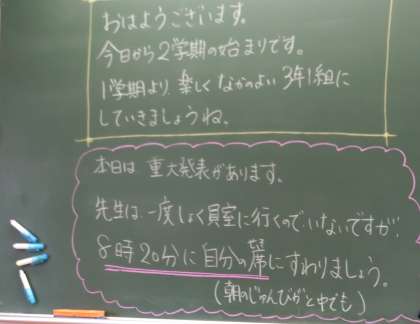 おはようございます。
今日から2学期の始まりです。
1学期より、楽しくなかのよい3年1組に
していきましょうね。
本日は重大発表があります。
先生は、一度しょく員室に行くので、いないですが、
8時20分に自分の席にすわりましょう。
(朝のじゅんびがと中でも)